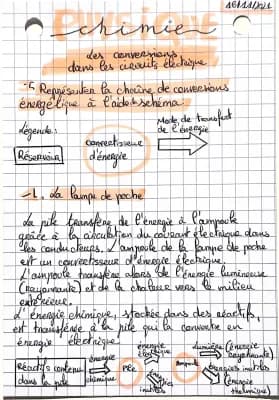 16/11/2021
chimie
Les conversions
dans les circuits électrique
-5 Représenter la chaîne de conversions
énergétique à l'aide schéma.
Légende:
Réservoir
convertisseur
d'énergie
Mode de transfert
de l'énergie
-1. La lampe de poche
La pile transfère de l'énergie à l'ampoule
grâce à la circulation du courant électrique dans
les conducteurs. L'ampoule de la lampe de poche
est un convertisseur d'énergie électrique.
L'ampoule transfère alors de l'énergie lumineuse
(rayonnante) et de la chaleur vers le milieu
extérieur.
L'énergie chimique, stockée dans des réactifs,
est transférée à la pile qui la convertie en
énergie électrique.
Réactifs contenu
dans la pile
énergie
chimique
Pile
énergie
électrique
inutiles
Ampoule
lumière (énergie
rayonnante)
énergies inutiles
(énergie
thermique)